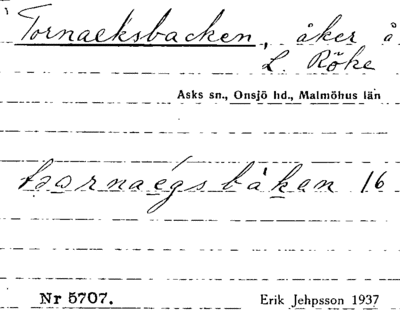 Tornaeksbacken, åker å
L. Röke
Asks sn., Onsjö hd., Malmöhus län
16
Nr 5707.
Erik Jehpsson 1937